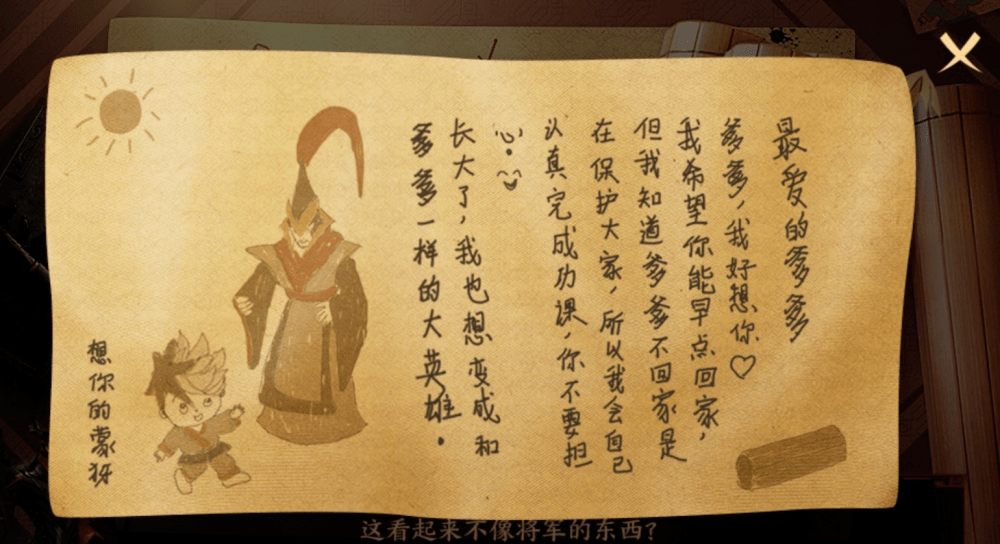 最爱的爹爹
爹爹，我好想你♡
我希望你能早点回家，
但我知道爹爹不回家是
在保护大家，所以我会自己
认真完成功课，你不要担
心。
长大了，我也想变成和
爹爹一样的大英雄。
想你的蒙犽
这看起来不像将军的东西？